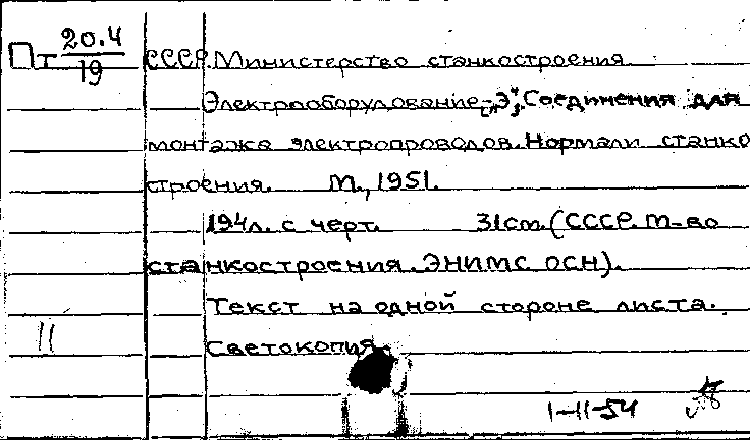 Пт 20.4/19 СССР. Министерство станкостроения
Электрооборудование „Э“, Соединения для
монтажа электропроводов. Нормали станко
строения. М., 1951.
194л. с черт. 31см. (СССР. М-во
станкостроения. ЭНИМС. ОСН).
Текст на одной стороне листа.
11
Светокопия.
1-11-54